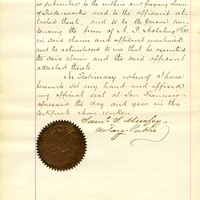 is subscribed to the within and foregoing claim
of Trademarks and to the affidavit at-
tached thereto, and to be the person com-
prising the firm of N. F. &Co.
in said claim and affidavit mentioned,
and he acknowledged to me that he executed
the said claim and the said affidavit
attached thereto.
In Testimony whereof I have
hereunto set my hand and affixed
my official seal at San Francisco
aforesaid the day and year in this
Certificate above written
Saml S Murfey
Notary Public